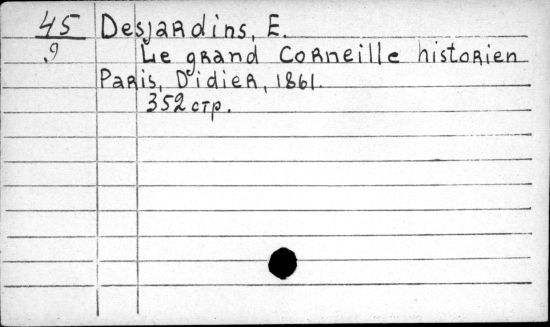 45 Desjardins, E.
9 Le grand Corneille historien
Paris, Didier, 1861.
352 стр.